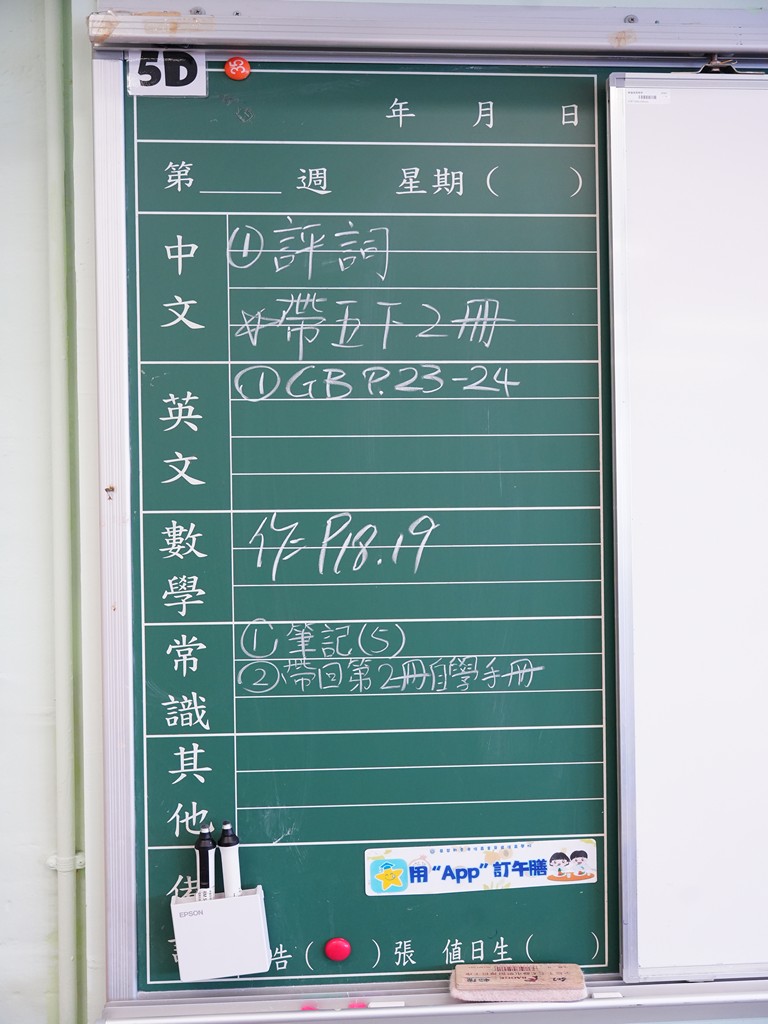 5D
35
年 月 日
第____週 星期( )
中文
①評詞
☆帶五下2冊
英文
①GB P.23-24
數學
作= P.18.19
常識
①筆記(5)
②帶回第2冊自學手冊
其他
用“App”訂午膳
EPSON
告( )張 值日生( )